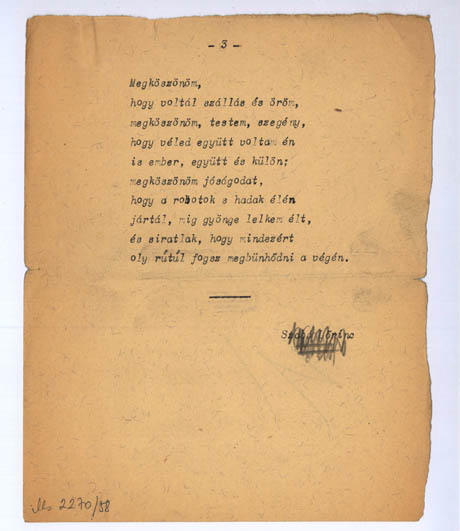 - 3 -
Megköszönöm,
hogy voltál szállás és öröm,
megköszönöm, testem, szegény,
hogy véled együtt voltam én
is ember, együtt és külön;
megköszönöm jóságodat,
hogy a robotok s hadak élén
jártál, mig gyönge lelkem élt,
és siratlak, hogy mindezért
oly rútúl fogsz megbünhődni a végén.
Szabó Lőrinc
2270/58